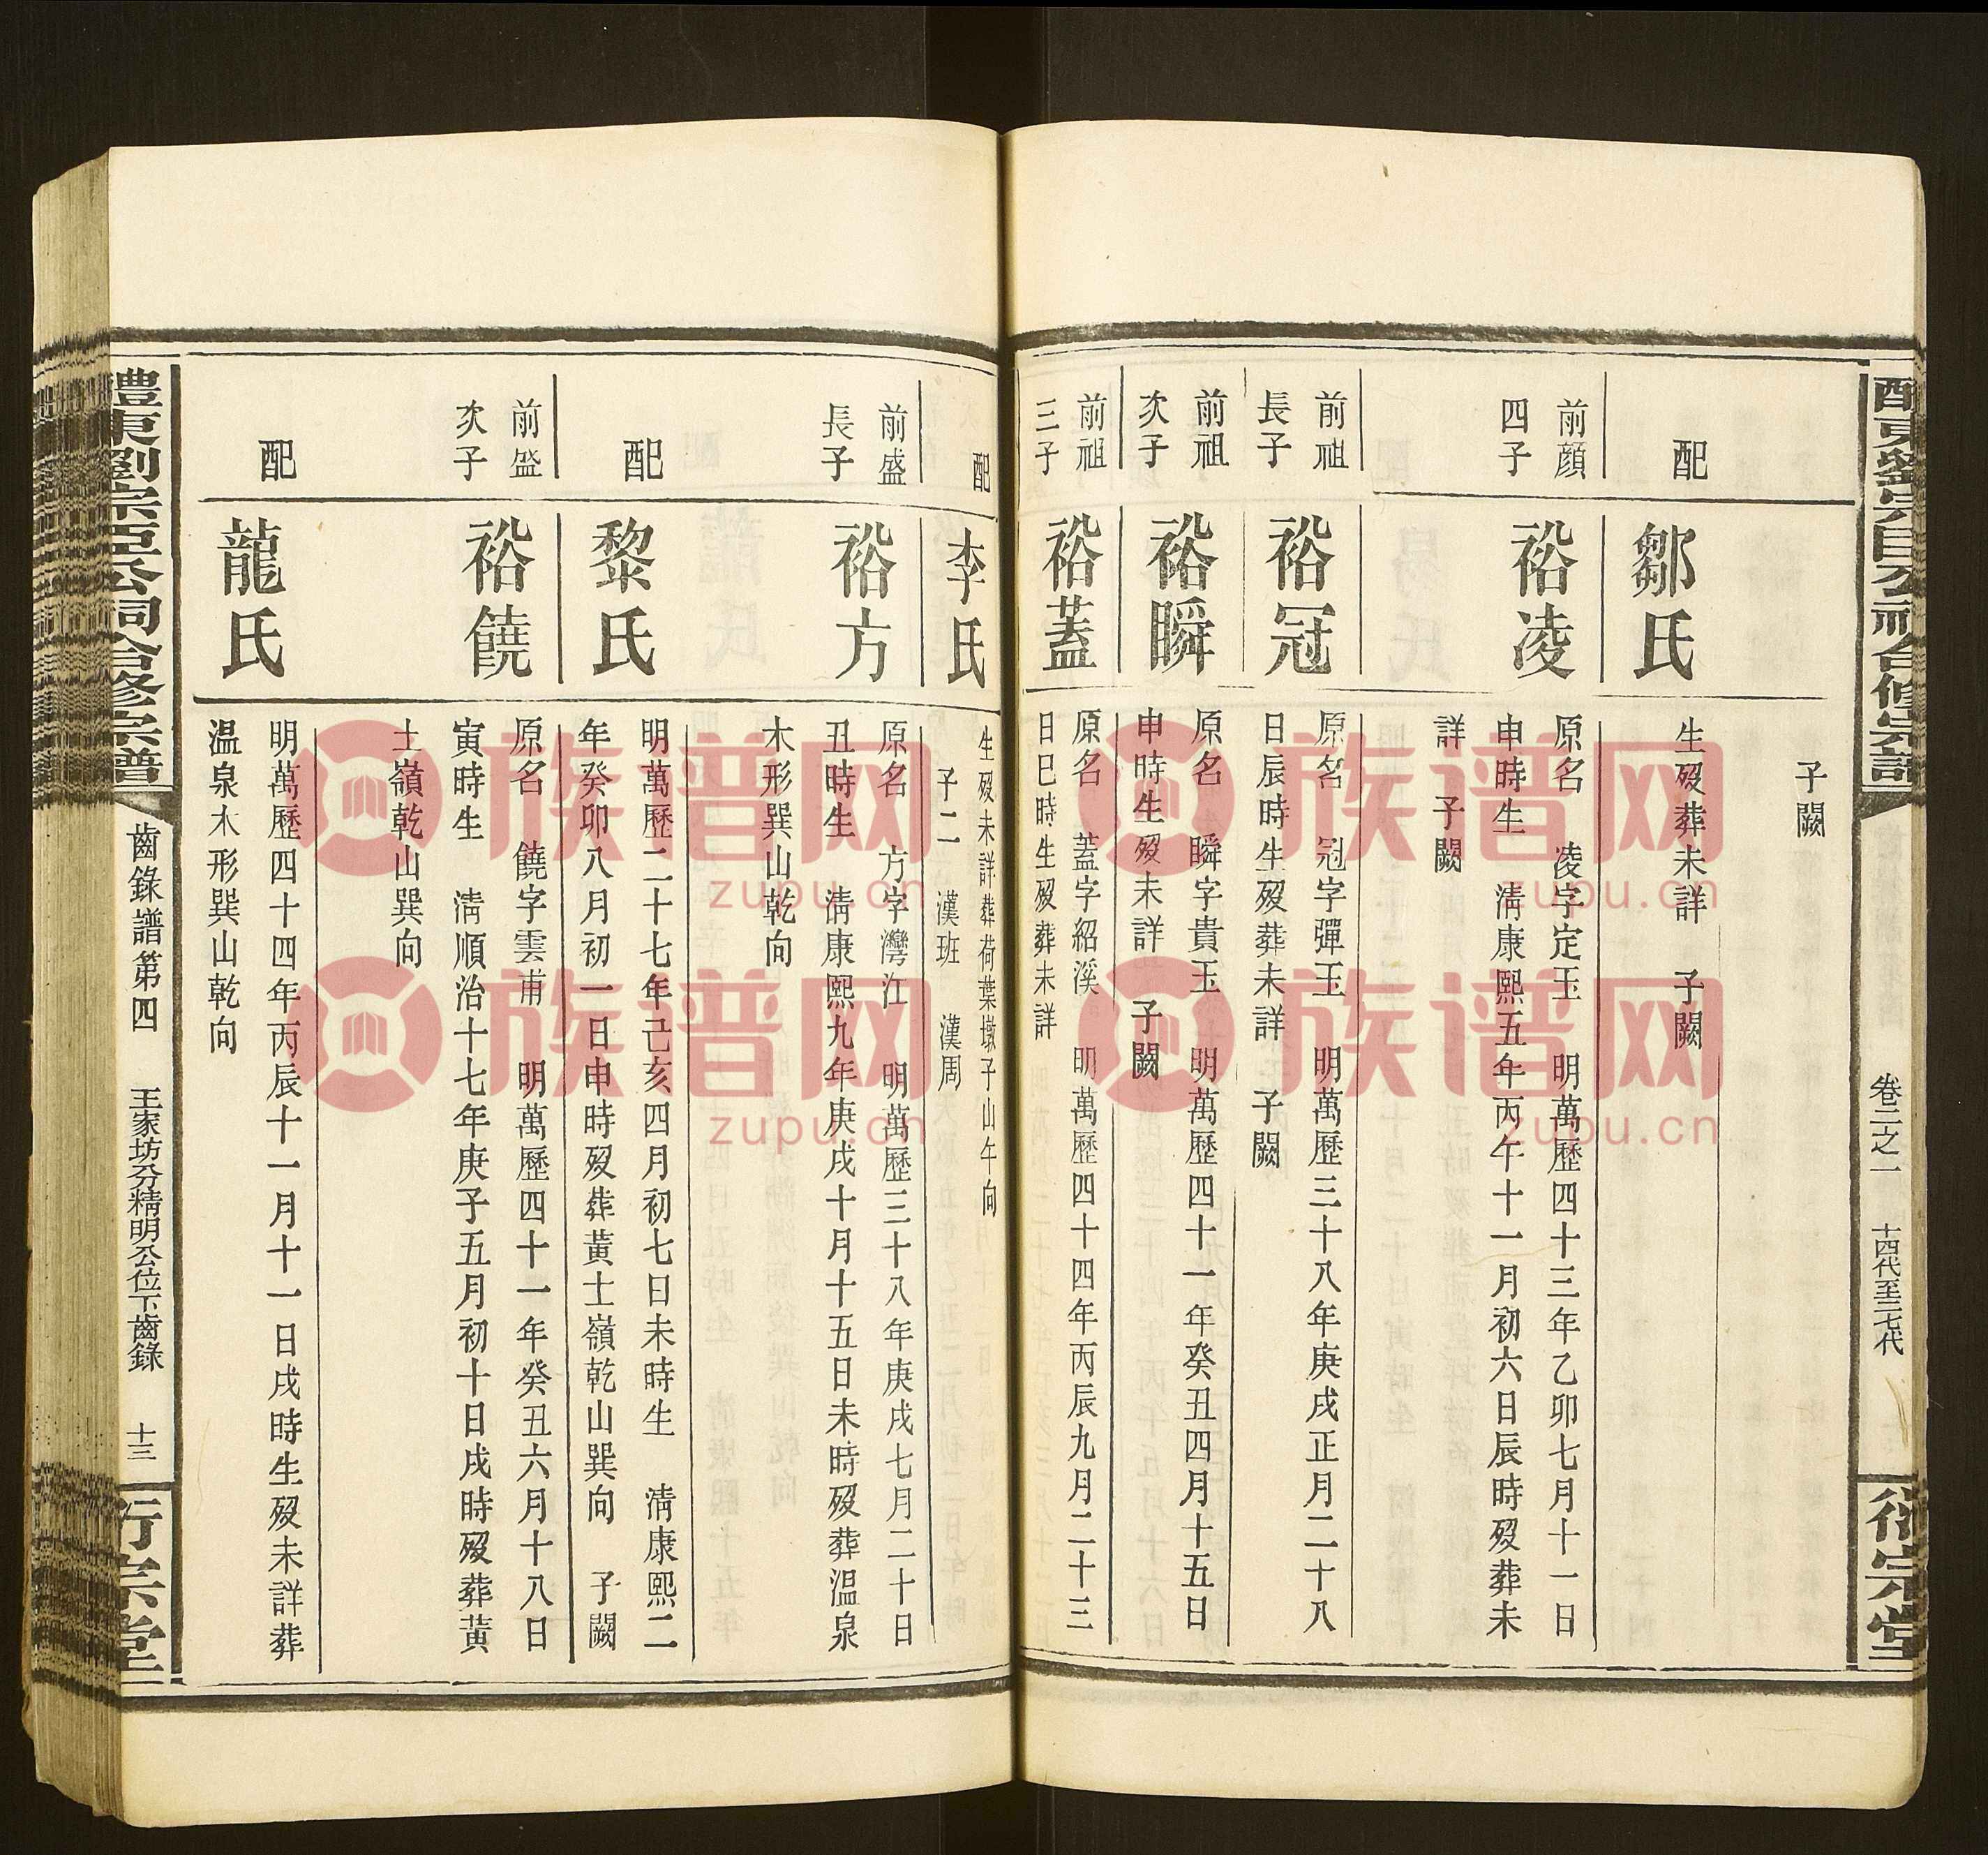 子闕
配
鄒氏
生歿葬未詳 子闕
前顏
四子
裕凌
原名 凌字定玉 明萬歷四十三年乙卯七月十一日
申時生 淸康熙五年丙午十一月初六日辰時歿葬未
詳 子闕
前祖
長子
裕冠
原名 冠字彈玉 明萬歷三十八年庚戌正月二十八
日辰時生歿葬未詳 子闕
前祖
次子
裕瞬
原名 瞬字貴玉 明萬歷四十一年癸丑四月十五日
申時生歿未詳 子闕
前祖
三子
裕蓋
原名 蓋字紹溪 明萬歷四十四年丙辰九月二十三
日巳時生歿葬未詳
卷二之一 十四代至二七代
衍宗堂
配
李氏
生歿未詳葬荷葉墩子山午向
子二 漢班 漢周
前盛
長子
裕方
原名 方字灣江 明萬歷三十八年庚戌七月二十日
丑時生 淸康熙九年庚戌十月十五日未時歿葬温泉
木形巽山乾向
配
黎氏
明萬歷二十七年己亥四月初七日未時生 淸康熙二
年癸卯八月初一日申時歿葬黃土嶺乾山巽向 子闕
前盛
次子
裕饒
原名 饒字雲甫 明萬歷四十一年癸丑六月十八日
寅時生 淸順治十七年庚子五月初十日戌時歿葬黃
土嶺乾山巽向
配
龍氏
明萬歷四十四年丙辰十一月十一日戌時生歿未詳葬
温泉木形巽山乾向
澧東劉宗臣公祠合修宗譜
齒錄譜第四 王家坊分精明公位下齒錄 十三
衍宗堂
族谱网
zupu.cn
族谱网
zupu.cn
族谱网
zupu.cn
族谱网
zupu.cn